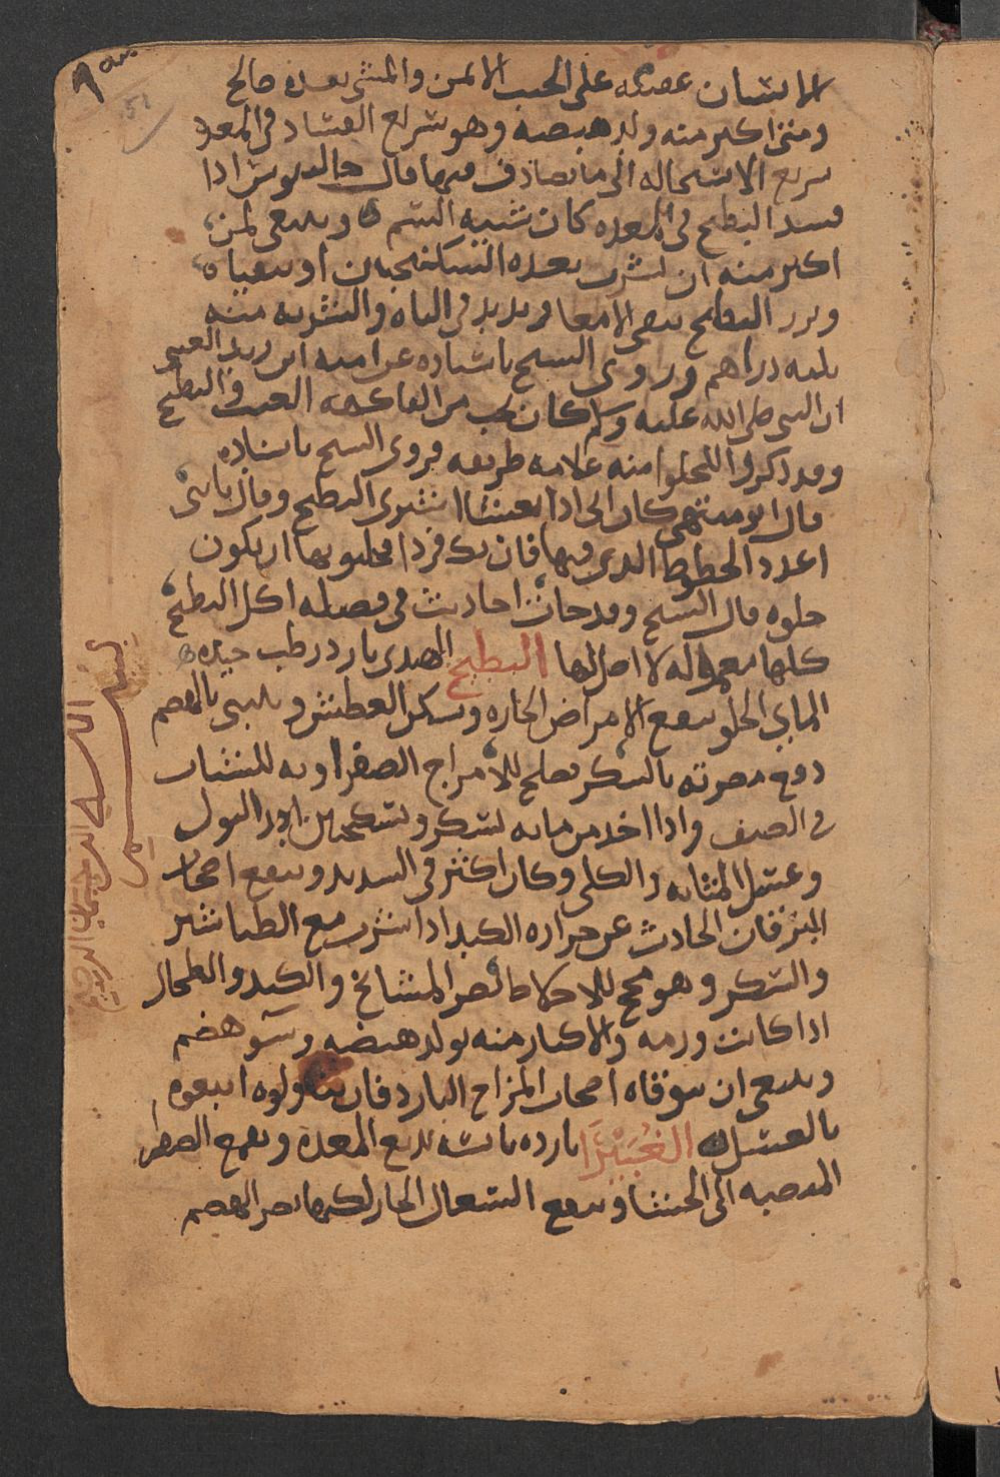 الانسان عقيبه على الجنب الايمن والمشي بعده صالح
ومتى اكثر منه ولد هيضه وهو سريع الفساد في المعدة
سريع الاستحاله الى ما يصادف فيها قال جالينوس اذا
فسد البطيخ في المعده كان شبيه السم وينبغي لمن
اكثر منه ان يشرب بعده السكنجبين او يتقياه
وبزر البطيخ ينقي الامعا ويزيد في الباه والشربه منه
ثلثه دراهم وروى الشيخ باسناده عن اميه ابن زيد العبسي
ان النبي صلى الله عليه وسلم كان يحب من الفاكهه العنب والبطيخ
وقد ذكروا للحلوا منه علامه طريفه فروى الشيخ باسناده
قال ابو مسهر كان ابى اذا بعثنا اشترى البطيخ وقال يا بنى
اعدد الخطوط الذي فيها فان تك فردا فخليق بها ان يكون
حلوه قال الشيخ وقد جات احاديث في فضيله اكل البطيخ
كلها معموله لا اصل لها البطيخ الهندي بارد رطب جيده
المايي الحلو ينفع الامراض الحاره ويسكن العطش ويسي الهضم
دفع مضرته بالسكر يصلح للامزاج الصفراويه للشباب
في الصيف واذا اخذ من مايه بسكر وسكنجبين ادر البول
وغسل المثانه والكلى وكان اكثر في التبريد وينفع اصحاب
اليرقان الحادث عن حراره الكبد اذا شرب مع الطباشير
والسكر وهو للاخلاط يضر المشائخ والكبد والطحال
اذا كانت ورمه والاكثار منه يولد هيضه وسو هضم
وينبغي ان يتوقاه اصحاب المزاج البارد فان تناولوه اتبعوه
بالعسل الغبيرا بارده يابسه تدبغ المعدة وتقمع الصفرا
المنصبه الى الحشا وينفع السعال الحار لكنها تضر الهضم
بسم
الله الرحمن الرحيم